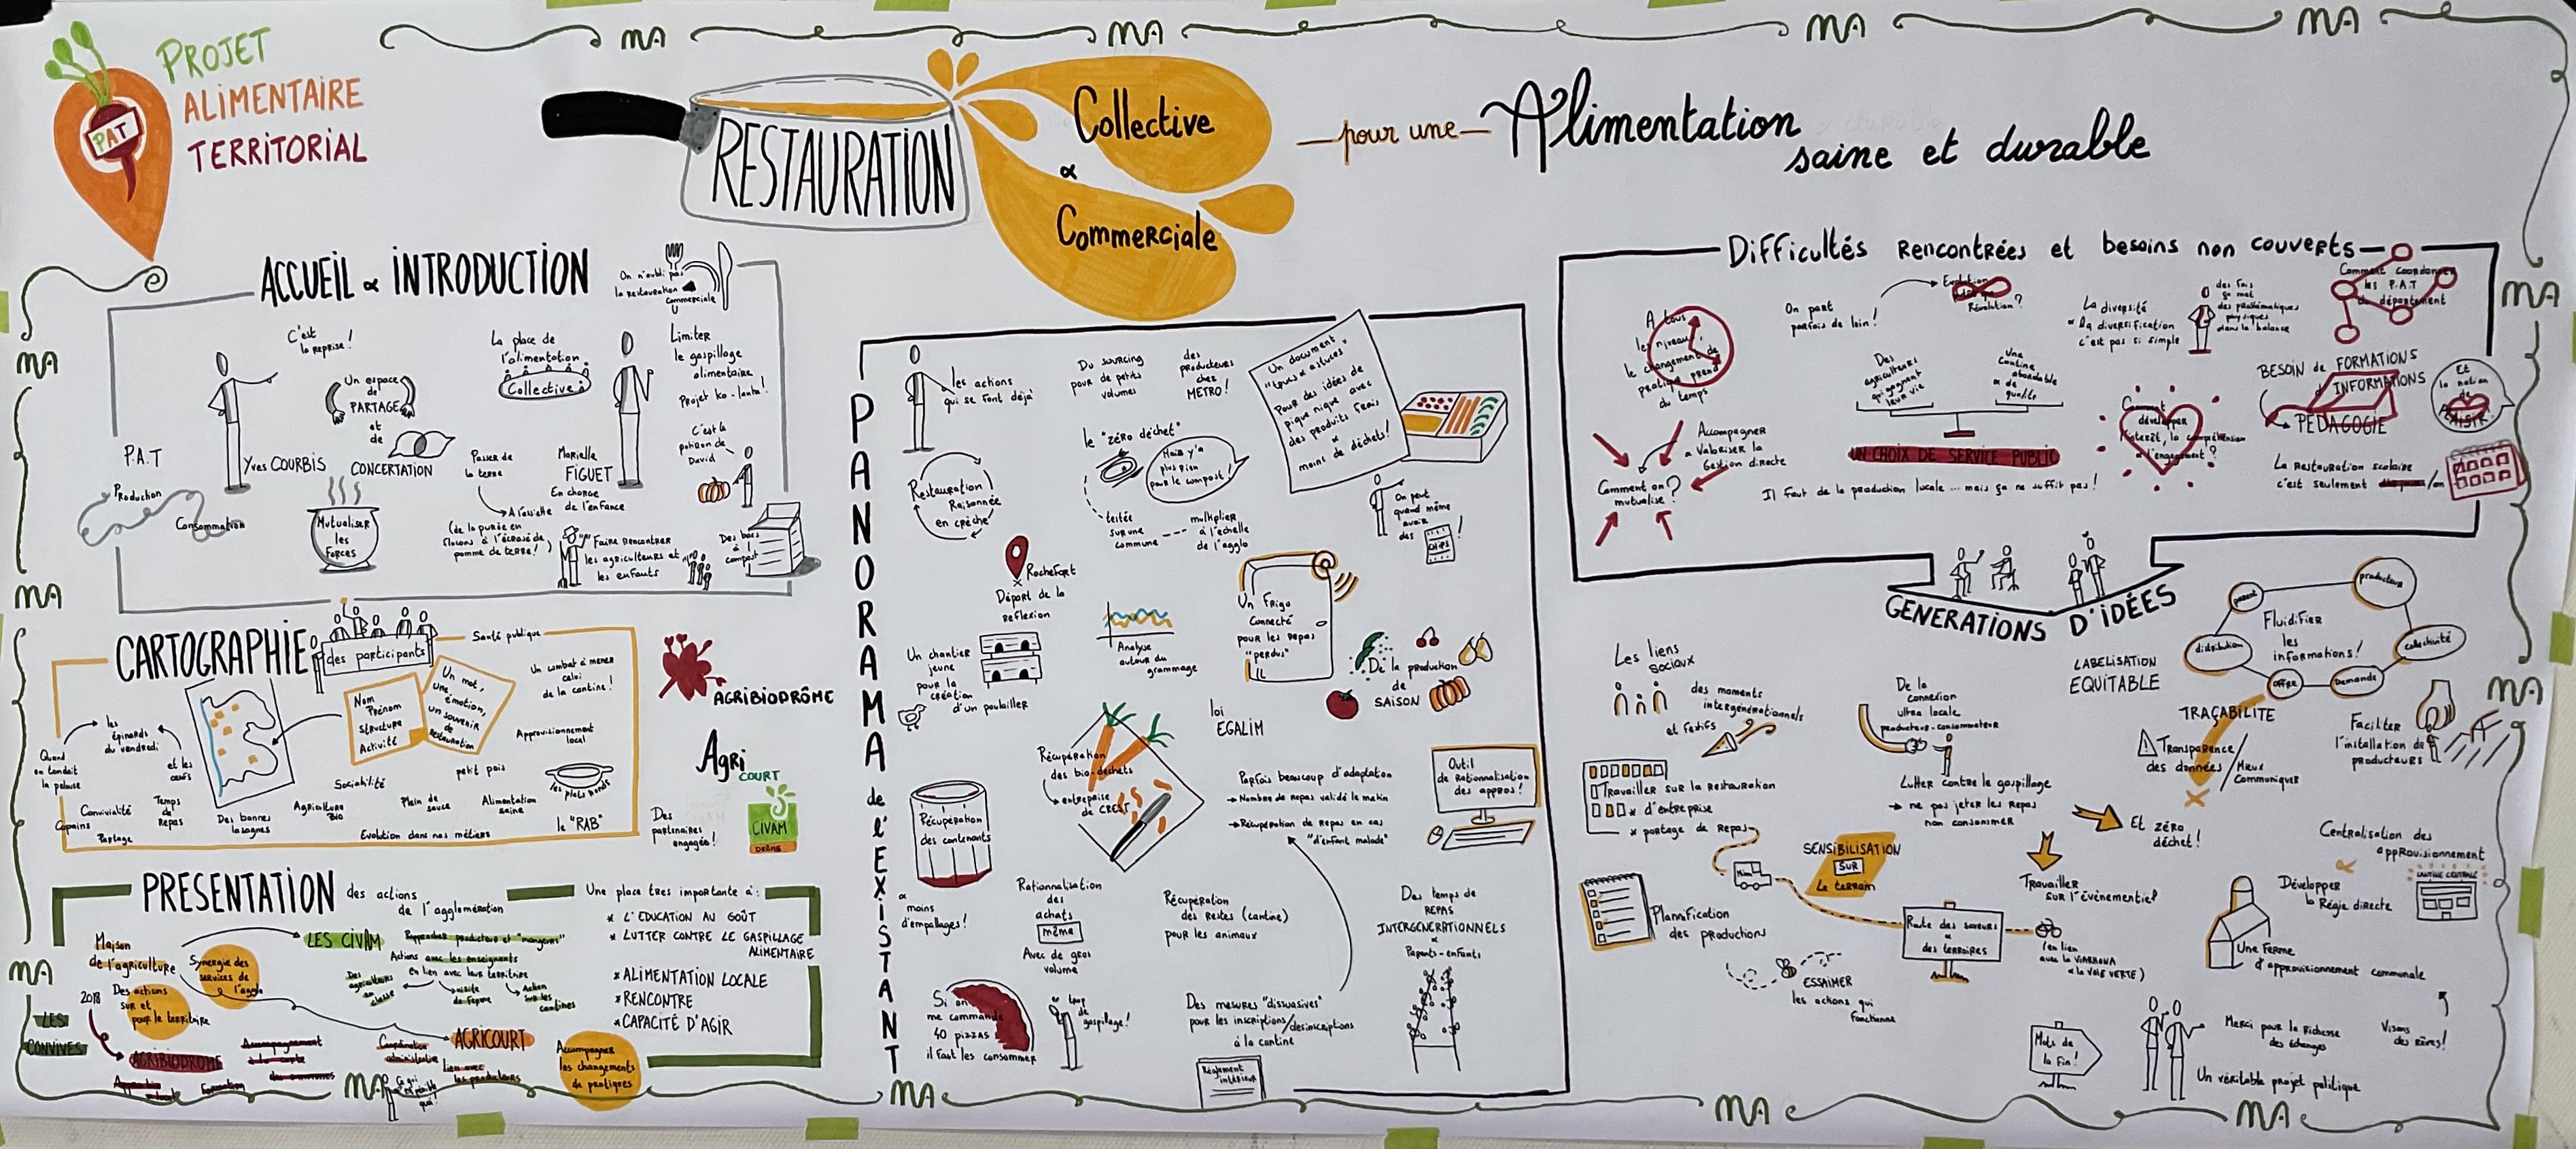 MA
MA
MA
MA
PROJET
ALIMENTAIRE
TERRITORIAL
PAT
RESTAURATION
Collective
&
Commerciale
pour une
Alimentation
saine et durable
ACCUEIL & INTRODUCTION
On n'oubli pas
la restauration
commerciale
C'est
la reprise!
Un espace
de
PARTAGE
et
de
CONCERTATION
La place de
l'alimentation
Collective
Limiter
le gaspillage
alimentaire
Projet ko-lanta!
P.A.T
Production
Consommation
Yves COURBIS
Mutualiser
les
forces
Passer de
la terre
A l'assiette
(de la purée en
flocons à l'écrasé de
pomme de terre!)
Marielle
FIGUET
En charge
de l'enfance
C'est le
potiron de
David
Faire rencontrer
les agriculteurs et
les enfants
Des bacs
à
compost!
MA
MA
CARTOGRAPHIE
des participants
Santé publique
Nom
Prénom
Structure
Activité
Un mot,
une
émotion,
un souvenir
de
restauration
Un combat à mener
celui
de la cantine!
Approvisionnement
local
les
épinards
du vendredi
Quand
on tondait
la pelouse
et les
œufs
Convivialité
Copains
Partage
Temps
de
Repas
Des bonnes
lasagnes
Sociabilité
Agriculture
Bio
Plein de
sauce
petit pois
Alimentation
saine
Evolution dans nos métiers
les plats ronds
le "RAB"
AGRIBIODRÔME
AGRI
COURT
Des
partenaires
engagés!
CIVAM
DRÔME
PRESENTATION
des actions
de l'agglomération
Maison
de l'agriculture
Synergie des
services de
l'agglo
2018
Des actions
sur et
pour le territoire
LES
CONVIVES
LES CIVAM
Rapprocher producteurs et "mangeurs"
Actions avec les enseignants
en lien avec leur territoire
Des
agriculteurs
en
classe
visite
de ferme
Action
sur les
cantines
AGRIBIODROME
Accompagnement
à la carte
des communes
Formation
Coordination
administrative
AGRICOURT
Lien avec
les producteurs
Accompagner
les changements
de pratiques
Une place tres importante à:
* L'EDUCATION AU GOÛT
* LUTTER CONTRE LE GASPILLAGE
ALIMENTAIRE
* ALIMENTATION LOCALE
* RENCONTRE
* CAPACITÉ D'AGIR
MA
MA
PANORAMA
de
l'EXISTANT
les actions
qui se font déjà
Du sourcing
pour de petits
volumes
des
producteurs
chez
METRO!
Un document
"trucs & astuces"
pour des idées de
pique nique avec
des produits frais
&
moins de déchets!
le "zéro déchet"
Mais y'a
plus rien
pour le compost!
Restauration
Raisonnée
en crèche
testée
sur une
commune
multiplier
à l'échelle
de l'agglo
On peut
quand même
avoir
des
CHIPS
!
Rochefort
Départ de la
réflexion
Un chantier
jeune
pour la
création
d'un poulailler
Analyse
autour du
grammage
Un Frigo
Connecté
pour les repas
"perdus"
De la production
de
SAISON
loi
EGALIM
Récupération
des bio-déchets
entreprise
de CREST
Récupération
des contenants
&
moins
d'emballages!
Parfois beaucoup d'adaptation
Nombre de repas validé le matin
Récupération de Repas en cas
"d'enfant malade"
Outil
de Rationnalisation
des appros!
Rationnalisation
des
achats
même
Avec de gros
volume
Récupération
des Restes (cantine)
pour les animaux
Des temps de
REPAS
INTERGENERATIONNELS
&
Parents-enfants
Si on
me commande
40 pizzas
il faut les consommer
trop
de
gaspilage!
Des mesures "dissuasives"
pour les inscriptions/desinscriptions
à la cantine
Règlement
intérieur
MA
Difficultés Rencontrées et besoins non couverts
A tous
les niveaux,
le changement de
pratique prend
du temps
On part
parfois de loin!
Evolution
Révolution?
La diversité
& la diversification
c'est pas si simple
des fois
ça met
des problématiques
physiques
dans la balance
Comment coordonner
les P.A.T
du département
Des
agriculteurs
qui gagnent
leur vie
Une
cantine
abordable
& de
qualité
UN CHOIX DE SERVICE PUBLIC
Il faut de la production locale... mais ça ne suffit pas!
Accompagner
& Valoriser la
Gestion directe
Comment on
mutualise?
Comment
développer
l'intérêt, la compréhension
& l'engagement?
BESOIN de FORMATIONS
d'INFORMATIONS
PÉDAGOGIE
Et
la notion
de
PLAISIR
La Restauration scolaire
c'est seulement
/an
MA
GENERATIONS D'IDÉES
Les liens
sociaux
des moments
intergénérationnels
et festifs
Travailler sur la Restauration
* d'entreprise
* portage de Repas
De la
connexion
ultra locale
producteur-consommateur
Lutter contre le gaspillage
ne pas jeter les Repas
non consommer
Et zéro
déchet!
LABELISATION
EQUITABLE
parent
producteur
distribution
collectivité
offre
Demande
Fluidifier
les
informations!
TRAÇABILITE
Transparence
des données
/
Mieux
Communiquer
Faciliter
l'installation de
producteurs
MA
SENSIBILISATION
SUR
le terrain
Planification
des productions
Travailler
sur l'événementiel
Centralisation des
approvisionnement
CANTINE CENTRALE
Développer
la Régie directe
Route des saveurs
&
des terroires
(en lien
avec la VIARHONA
& la VOIE VERTE)
ESSAIMER
les actions qui
fonctionne
Une Ferme
d'approvisionnement communale
Mots de
la fin!
Merci pour la Richesse
des échanges
Visons
des rêves!
Un véritable projet politique
MA
MA